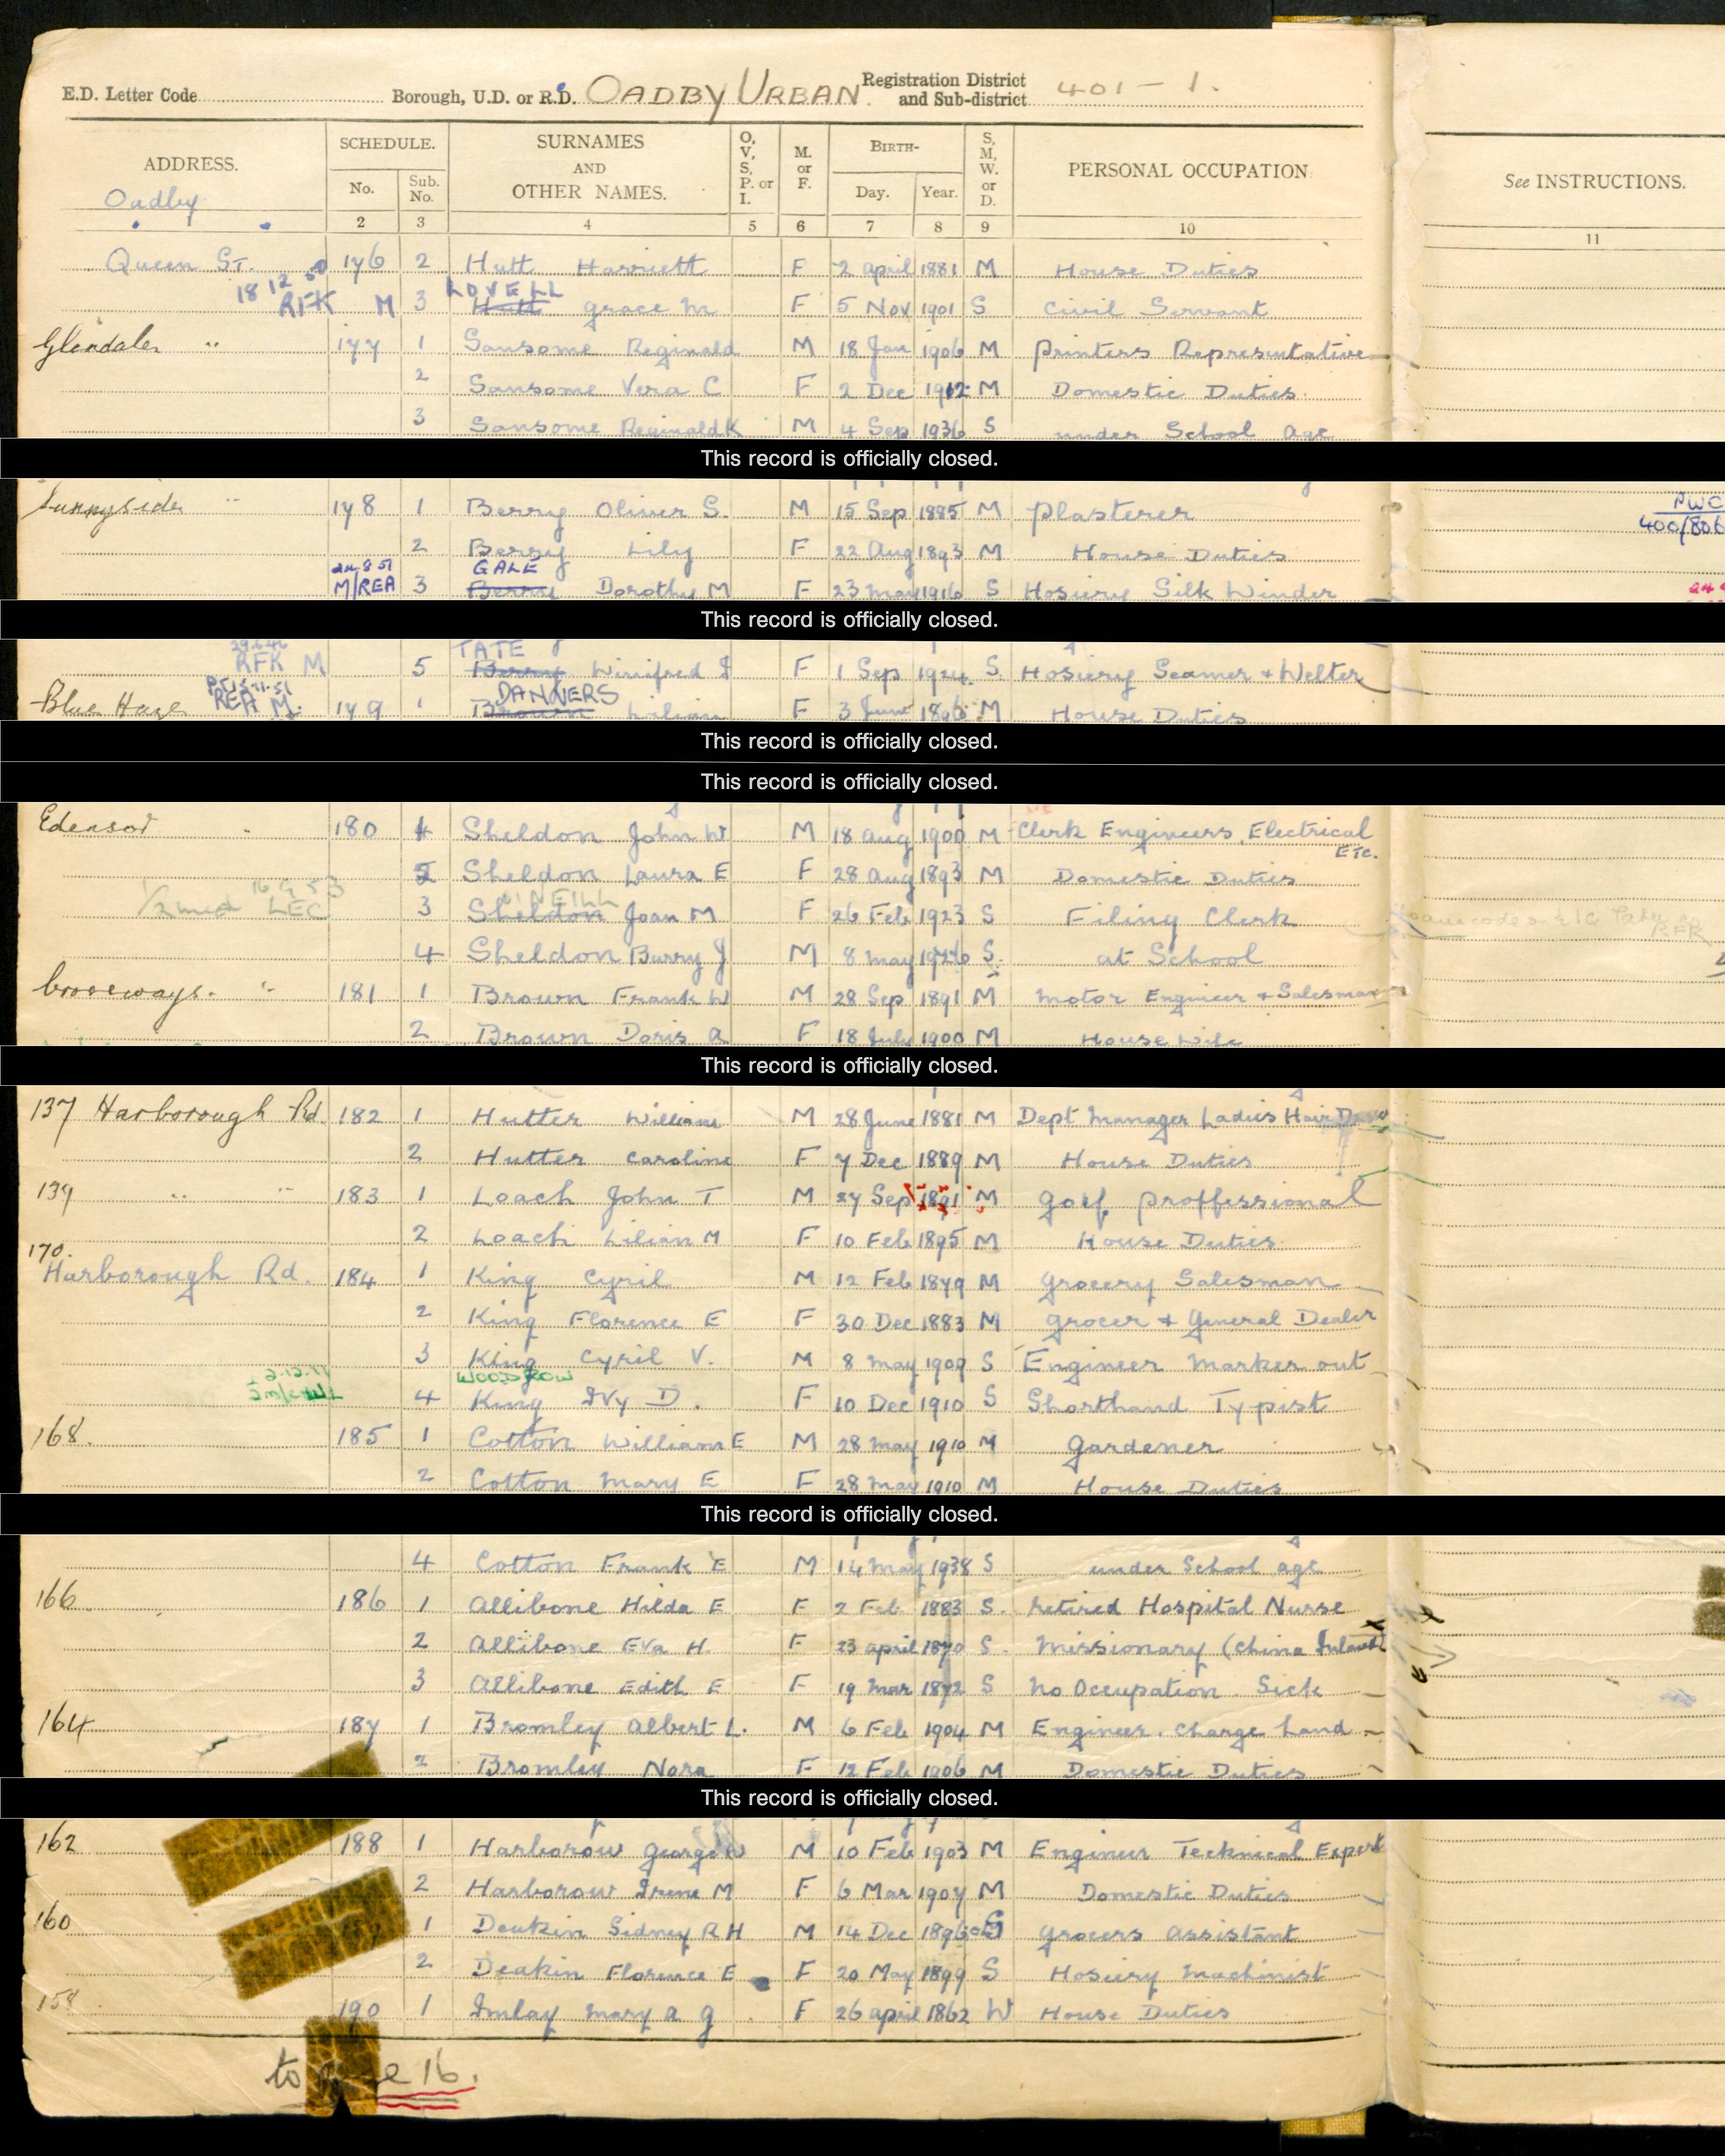 E.D. Letter Code Borough, U.D. or R.D. OADBY URBAN Registration District and Sub-district 401 - 1.
ADDRESS. SCHEDULE. SURNAMES AND OTHER NAMES. O, V, S, P. or I. M. or F. BIRTH- S, M, W. or D. PERSONAL OCCUPATION. See INSTRUCTIONS.
Oadby No. Sub. No. Day. Year.
2 3 4 5 6 7 8 9 10 11
Queen St. 176 2 Hutt Harriett F 2 April 1881 M House Duties
18 12 50 LOVELL
RFK M 3 Hutt Grace M F 5 Nov 1901 S Civil Servant
Glendale " 177 1 Sansome Reginald M 18 Jan 1906 M Printers Representative
2 Sansome Vera C F 2 Dec 1912 M Domestic Duties.
3 Sansome Reginald K M 4 Sep 1936 S under School Age
This record is officially closed.
Sunnyside " 178 1 Berry Oliver S. M 15 Sep 1885 M Plasterer NWC
400/806
2 Berry Lily F 22 Aug 1893 M House Duties
24.8.51 GALE
M/REA 3 Berry Dorothy M F 23 May 1916 S Hosiery Silk Winder
This record is officially closed.
TATE
RFK M 5 Berry Winifred J F 1 Sep 1924 S. Hosiery Seamer + Welter
DANVERS
Blue Haze REA M. 179 1 Brown Lilian F 3 June 1896 M House Duties
This record is officially closed.
This record is officially closed.
Edensor " 180 1 Sheldon John W M 18 Aug 1900 M Clerk Engineers, Electrical
ETC.
2 Sheldon Laura E F 28 Aug 1893 M Domestic Duties
16 9 53 O'NEILL
LEC 3 Sheldon Joan M F 26 Feb 1923 S Filing Clerk
RFR
4 Sheldon Barry J M 8 May 1926 S. at School
Crossways. " 181 1 Brown Frank W M 28 Sep 1891 M Motor Engineer + Salesman
2 Brown Doris A F 18 July 1900 M House Wife
This record is officially closed.
137 Harborough Rd. 182 1 Hutter William M 28 June 1881 M Dept Manager Ladies Hair
2 Hutter Caroline F 7 Dec 1889 M House Duties
139 " " 183 1 Loach John T M 27 Sep 1891 M Golf Proffessional
2 Loach Lilian M F 10 Feb 1895 M House Duties
170.
Harborough Rd. 184 1 King Cyril M 12 Feb 1879 M Grocery Salesman
2 King Florence E F 30 Dec 1883 M Grocer + General Dealer
3 King Cyril V. M 8 May 1909 S Engineer Marker out
WOODROW
4 King Ivy D. F 10 Dec 1910 S Shorthand Typist
168. 185 1 Cotton William E M 28 May 1910 M Gardener
2 Cotton Mary E F 28 May 1910 M House Duties
This record is officially closed.
4 Cotton Frank E M 14 May 1938 S under School age
166 186 1 Allibone Hilda E F 2 Feb 1883 S. Retired Hospital Nurse
2 Allibone Eva H. F 23 April 1870 S. Missionary (China Inland
3 Allibone Edith E F 19 Mar 1872 S No Occupation. Sick
164 187 1 Bromley Albert L. M 6 Feb 1904 M Engineer. Charge Hand
2 Bromley Nora F 12 Feb 1906 M Domestic Duties
This record is officially closed.
162 188 1 Harborow George W M 10 Feb 1903 M Engineer Technical Expert
2 Harborow Irene M F 6 Mar 1907 M Domestic Duties
160 1 Deakin Sidney R H M 14 Dec 1896 S Grocers Assistant
2 Deakin Florence E F 20 May 1899 S Hosiery Machinist
158 190 1 Imlay Mary A G F 26 April 1862 W House Duties
to 16.